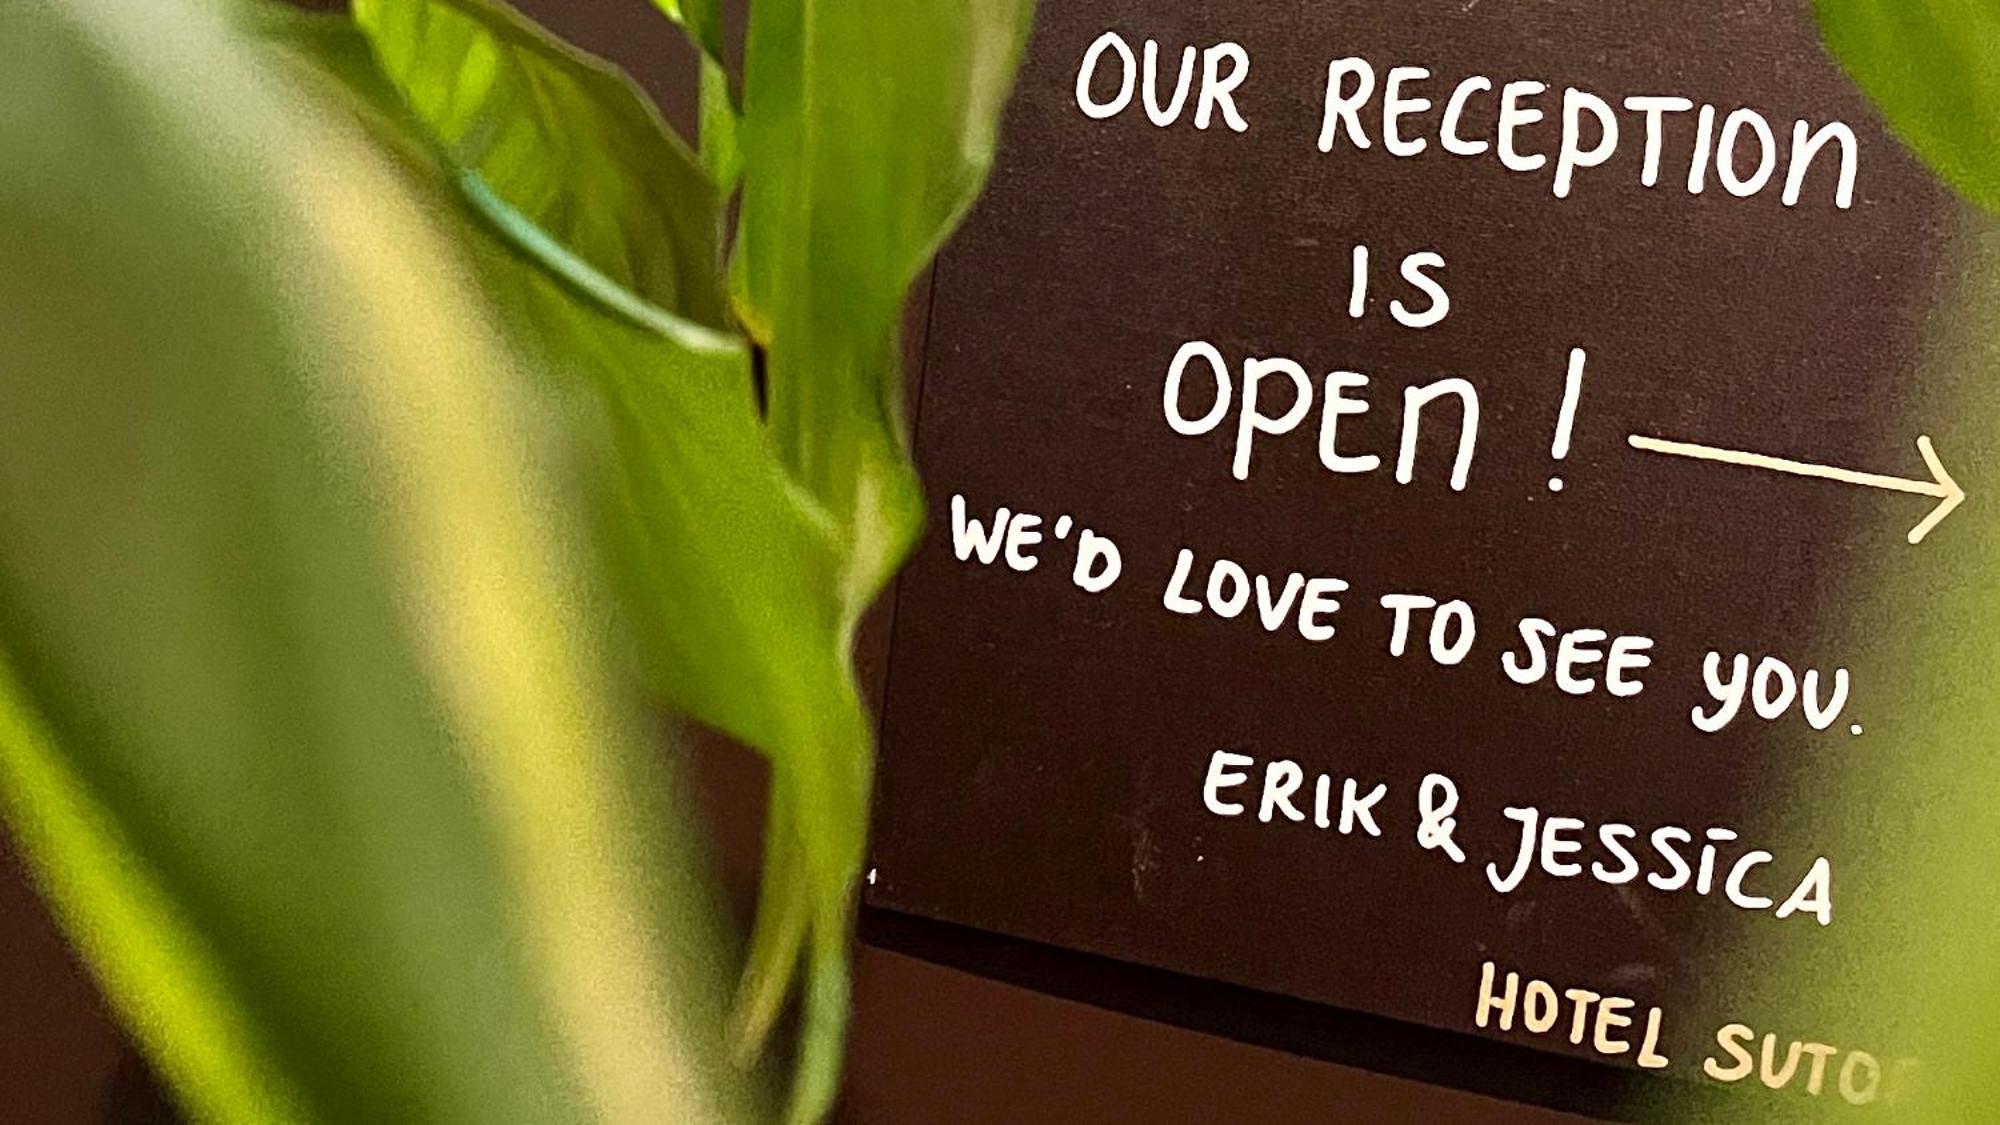 OUR RECEPTION
IS
OPEN! →
WE'D LOVE TO SEE YOU.
ERIK & JESSICA
HOTEL